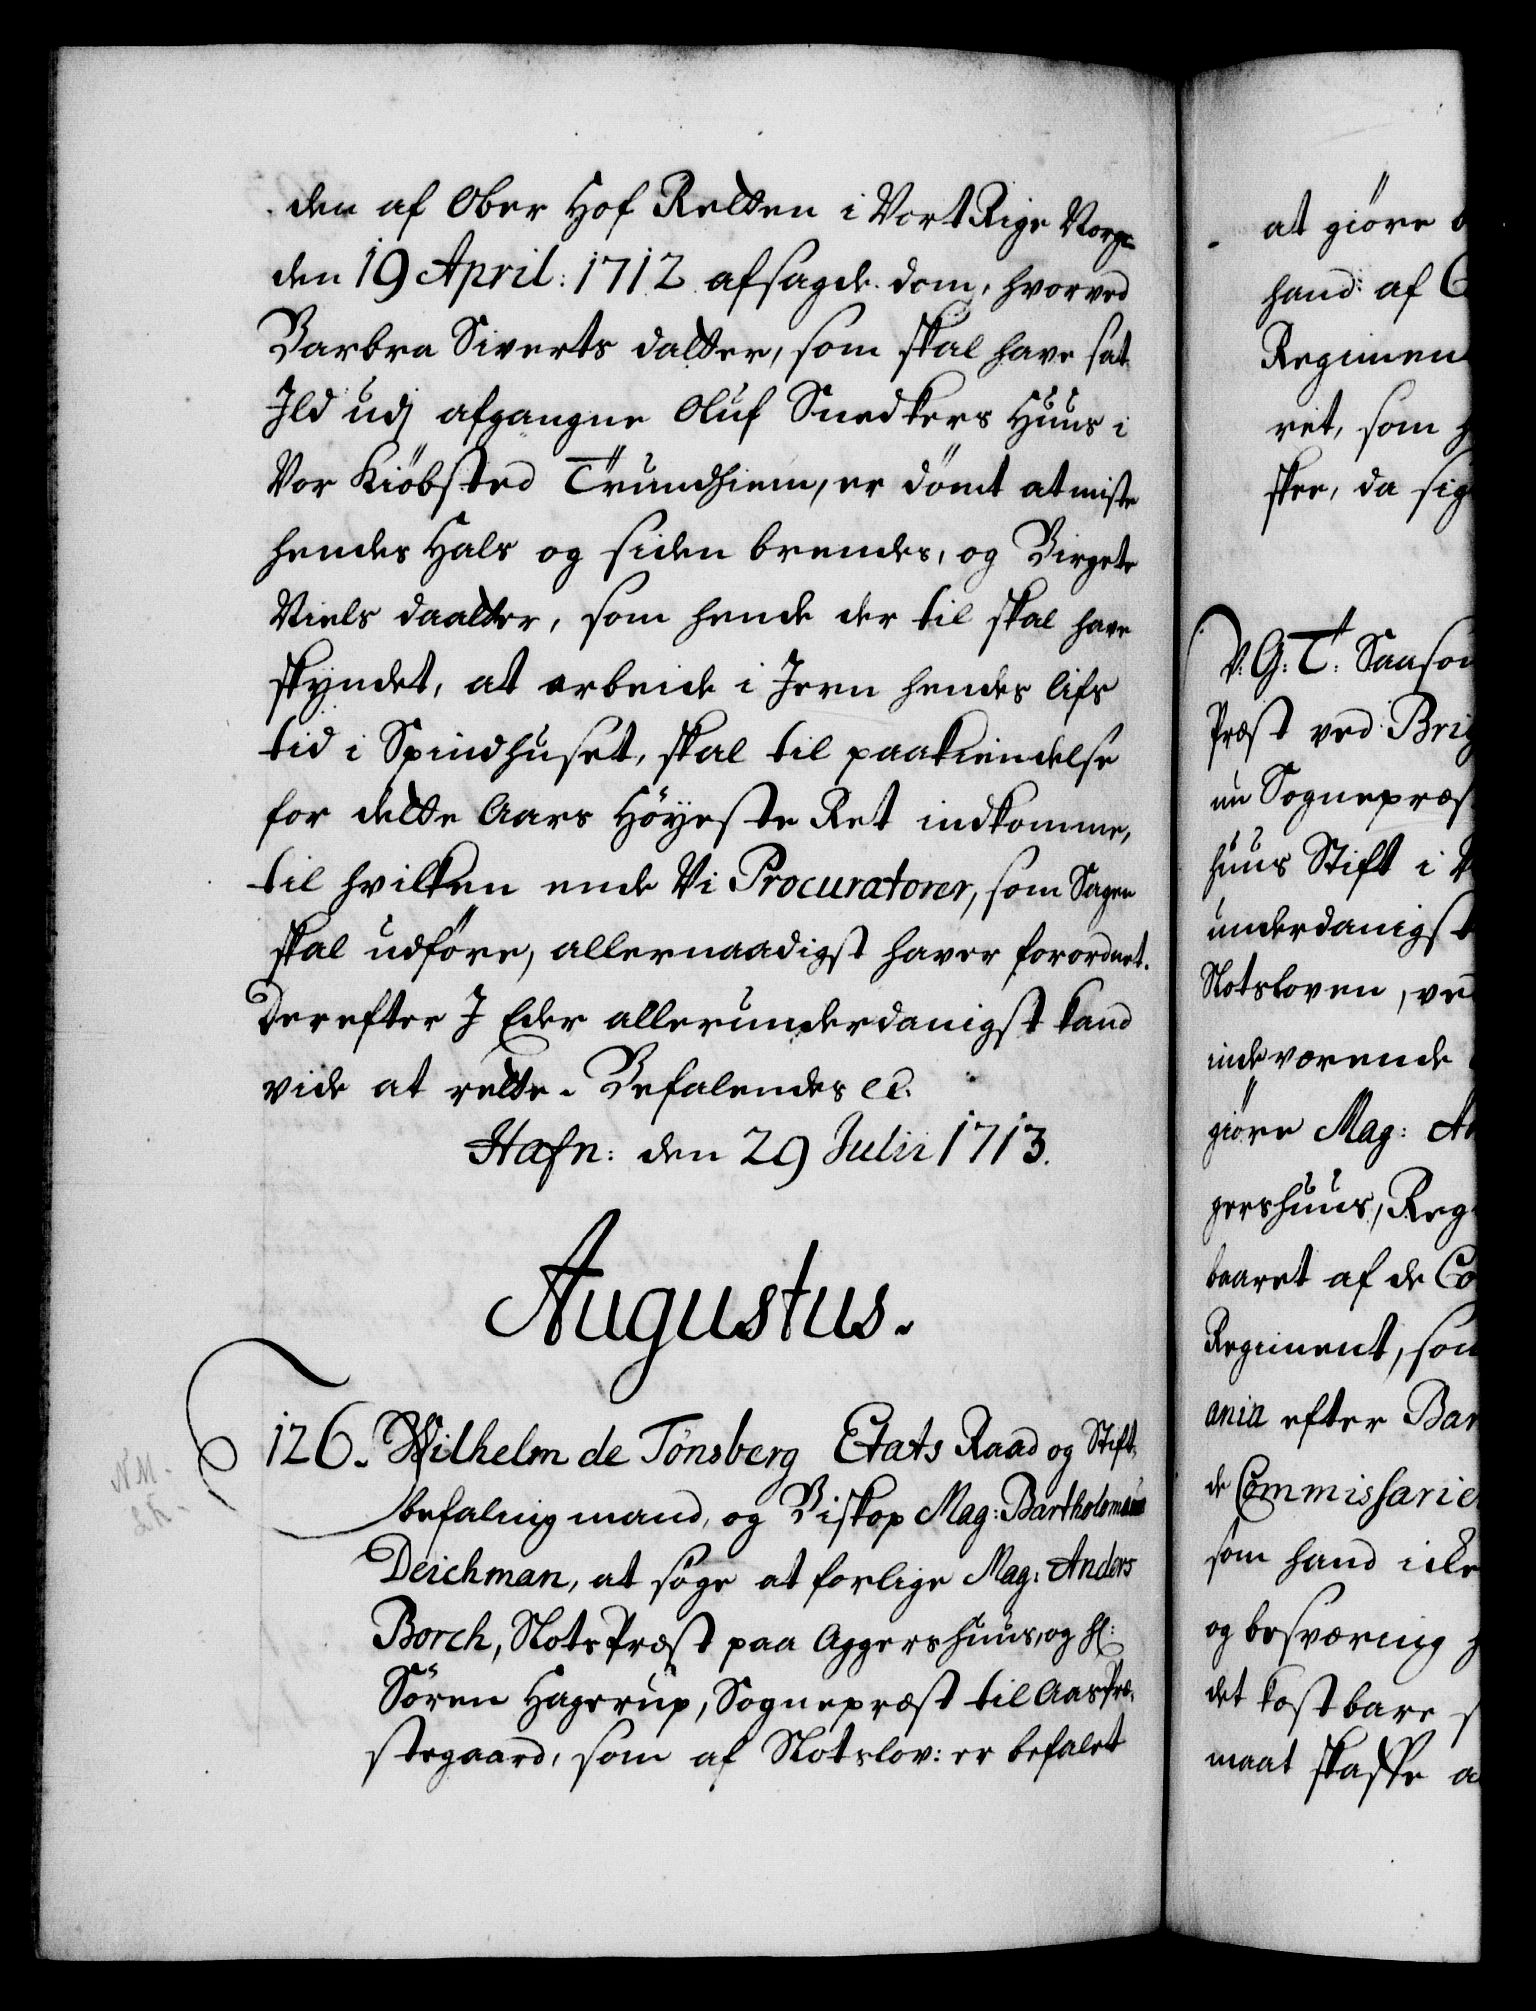 den af Ober Hof Retten i Vort Rige Norge
den 19 April: 1712 afsagde dom, hvorved
Barbra Siverts datter, som skal have sat
Ild udj afgangne Oluf Snedkers Huus i
Vor Kiöbsted Trundhiem, er dömt at miste
hendes Hals og siden brendes, og Birgete
Niels daatter, som hende der til skal have
skyndet, at arbeide i Jern hendes lifs
tid i Spindhuset, skal til paakiendelse
for dette Aars Höyeste Ret indkomme,
til hvilken ende Vi Procuratorer, som Sagen
skal udföre, allernaadigst haver forordnet.
Derefter I Eder allerunderdanigst kand
vide at rette. Befalendes etc.
Hafn: den 29 Julii 1713.
Augustus.
126. Wilhelm de Tönsberg Etats Raad og Stift
befalingmand, og Biskop Mag: Bartholomæus
Deichman, at söge at forlige Mag: Anders
Borch, Slots Præst paa Aggershuus, og Hl:
Sören Hagerup, Sognepræst til Aas Præ-
stegaard, som af Slotslov: er befalet
N.M.
L.K.
at giöre
hand: af
Regimen
ret, som
skee, da sig
V: G: T: Saasom
Præst ved Brig
nu Sognepræst
huus Stift i
underdanigst
Slotsloven, ved
indeværende
giöre Mag: An
gershuus, Reg
baaret af de Co
Regiment, som
ania efter Bar
de Commissarie
som hand icke
og besværing
det kostbare
maat skaffe